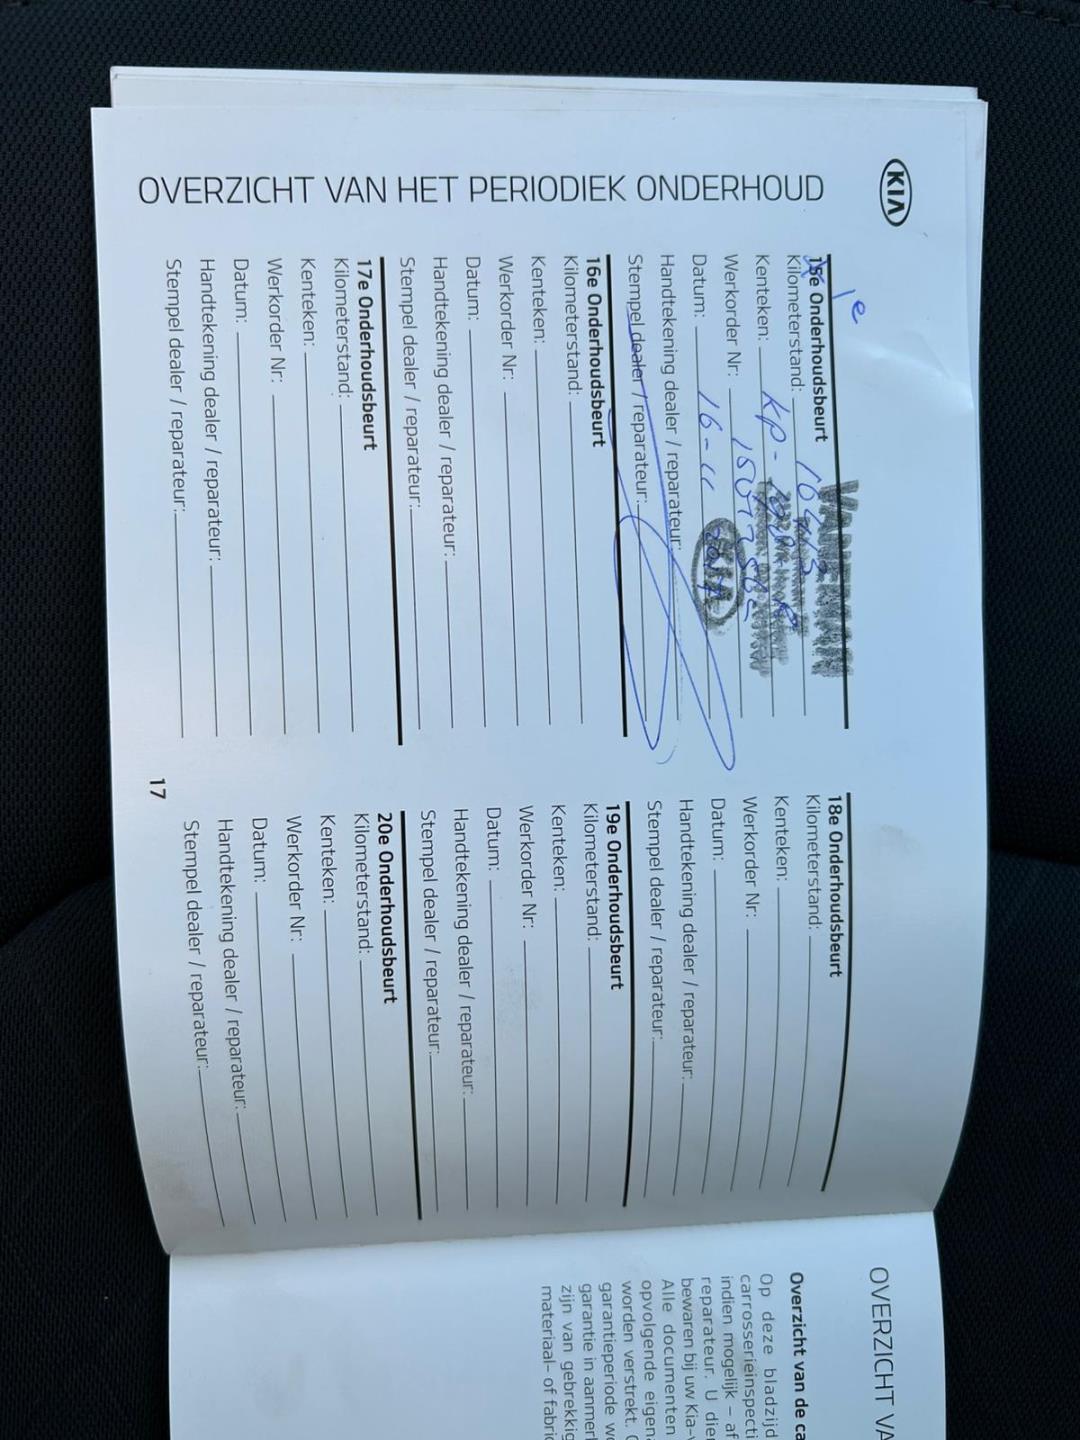 KIA
OVERZICHT VAN HET PERIODIEK ONDERHOUD
1e
15e Onderhoudsbeurt
Kilometerstand:
Kenteken: KP-
Werkorder Nr:
Datum: 16-11
KIA
Handtekening dealer / reparateur:
Stempel dealer / reparateur:
16e Onderhoudsbeurt
Kilometerstand:
Kenteken:
Werkorder Nr:
Datum:
Handtekening dealer / reparateur:
Stempel dealer / reparateur:
17e Onderhoudsbeurt
Kilometerstand:
Kenteken:
Werkorder Nr:
Datum:
Handtekening dealer / reparateur:
Stempel dealer / reparateur:
18e Onderhoudsbeurt
Kilometerstand:
Kenteken:
Werkorder Nr:
Datum:
Handtekening dealer / reparateur:
Stempel dealer / reparateur:
19e Onderhoudsbeurt
Kilometerstand:
Kenteken:
Werkorder Nr:
Datum:
Handtekening dealer / reparateur:
Stempel dealer / reparateur:
20e Onderhoudsbeurt
Kilometerstand:
Kenteken:
Werkorder Nr:
Datum:
Handtekening dealer / reparateur:
Stempel dealer / reparateur:
17
OVERZICHT VA
Overzicht van de ca
Op deze bladzijd
carrosserieinspecti
indien mogelijk – af
reparateur. U dier
bewaren bij uw Kia-
Alle documenten
opvolgende eigen
worden verstrekt.
garantieperiode wo
garantie in aanmer
zijn van gebrekkig
materiaal- of fabri